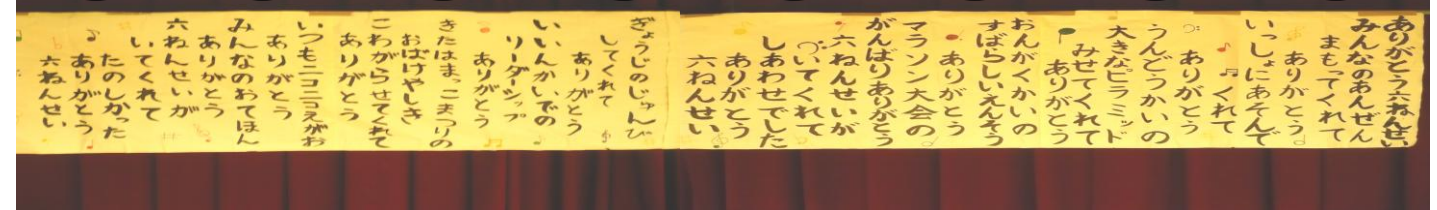 ありがとう六ねんせい
みんなのあんぜん
まもってくれて
ありがとう
いっしょにあそんで
くれて
ありがとう
うんどうかいの
大きなピラミッド
みせてくれて
ありがとう
おんがくかいの
すばらしいえんそう
ありがとう
マラソン大会の
がんばりありがとう
六ねんせいが
いてくれて
しあわせでした
ありがとう
六ねんせい
ぎょうじのじゅんび
してくれて
ありがとう
いいんかいでの
リーダーシップ
ありがとう
きたはまっこまつりの
おばけやしき
こわがらせてくれて
ありがとう
いつもニコニコえがお
ありがとう
みんなのおてほん
ありがとう
六ねんせいが
いてくれて
たのしかった
ありがとう
六ねんせい